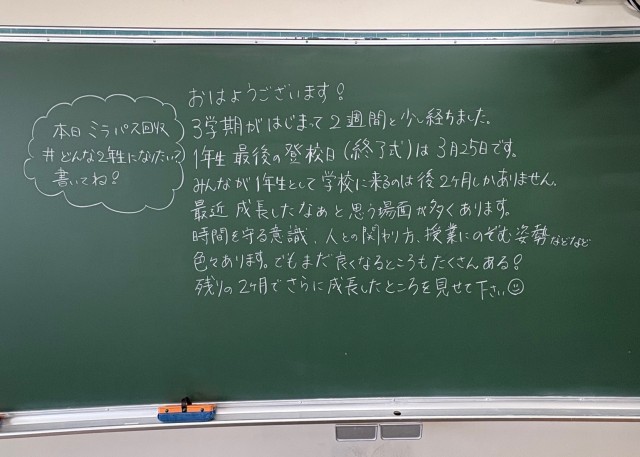 本日 ミラパス回収
#どんな2年生になりたいって
書いてね!
おはようございます!
3学期がはじまって2週間と少し経ちました。
1年生 最後の登校日(終了式)は3月25日です。
みんなが1年生として学校に来るのは後2ヶ月しかありません。
最近 成長したなぁと思う場面が多くあります。
時間を守る意識、人との関わり方、授業にのぞむ姿勢などなど
色々あります。でもまだ良くなるところもたくさんある!
残りの2ヶ月でさらに成長したところを見せて下さい☺